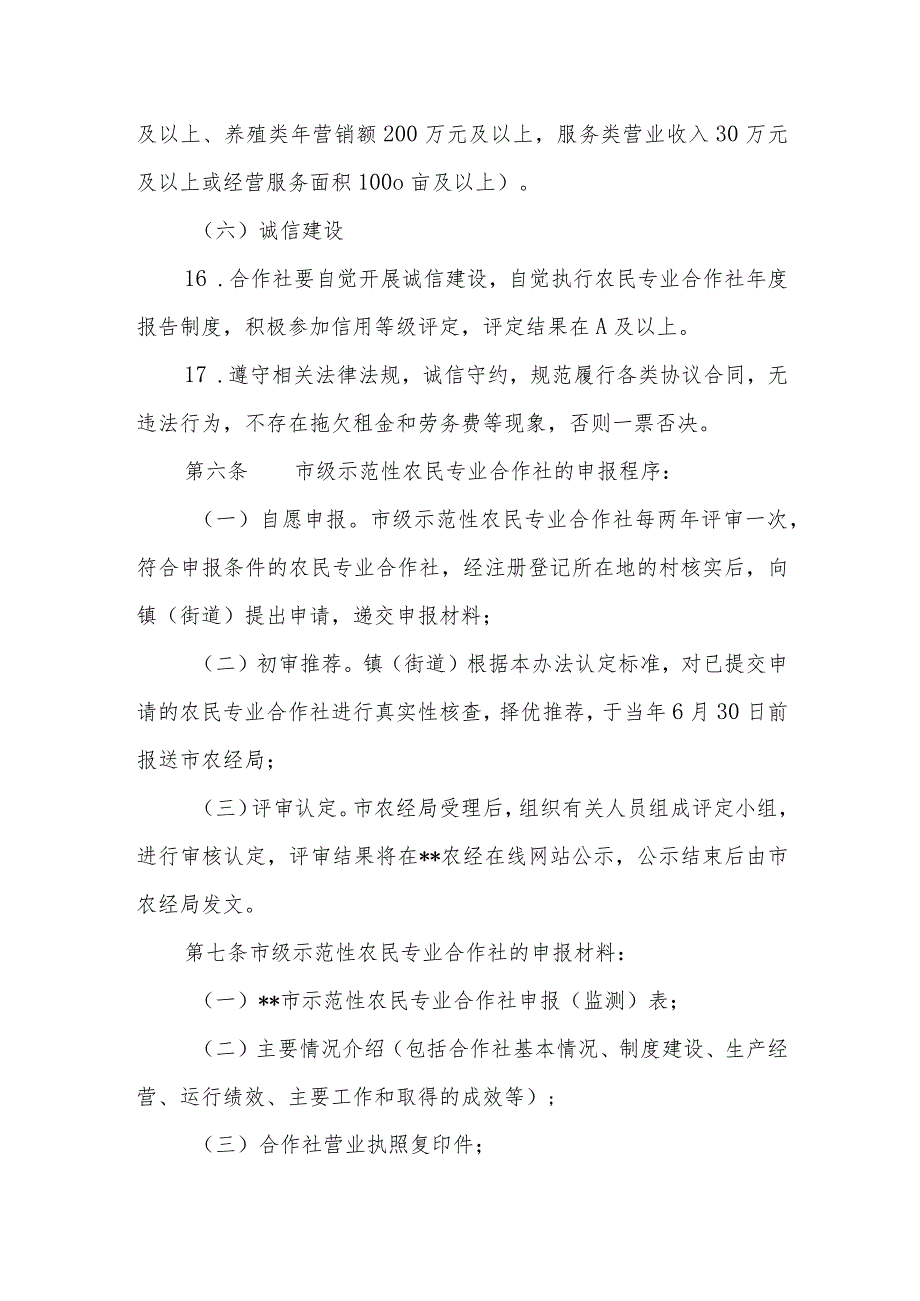 及以上、养殖类年营销额200万元及以上，服务类营业收入30万元
及以上或经营服务面积100o亩及以上）。
（六）诚信建设
16 .合作社要自觉开展诚信建设，自觉执行农民专业合作社年度
报告制度，积极参加信用等级评定，评定结果在A及以上。
17 .遵守相关法律法规，诚信守约，规范履行各类协议合同，无
违法行为，不存在拖欠租金和劳务费等现象，否则一票否决。
第六条　　市级示范性农民专业合作社的申报程序：
（一）自愿申报。市级示范性农民专业合作社每两年评审一次，
符合申报条件的农民专业合作社，经注册登记所在地的村核实后，向
镇（街道）提出申请，递交申报材料；
（二）初审推荐。镇（街道）根据本办法认定标准，对已提交申
请的农民专业合作社进行真实性核查，择优推荐，于当年6月30日前
报送市农经局；
（三）评审认定。市农经局受理后，组织有关人员组成评定小组，
进行审核认定，评审结果将在**农经在线网站公示，公示结束后由市
农经局发文。
第七条市级示范性农民专业合作社的申报材料：
（一）**市示范性农民专业合作社申报（监测）表；
（二）主要情况介绍（包括合作社基本情况、制度建设、生产经
营、运行绩效、主要工作和取得的成效等）；
（三）合作社营业执照复印件；